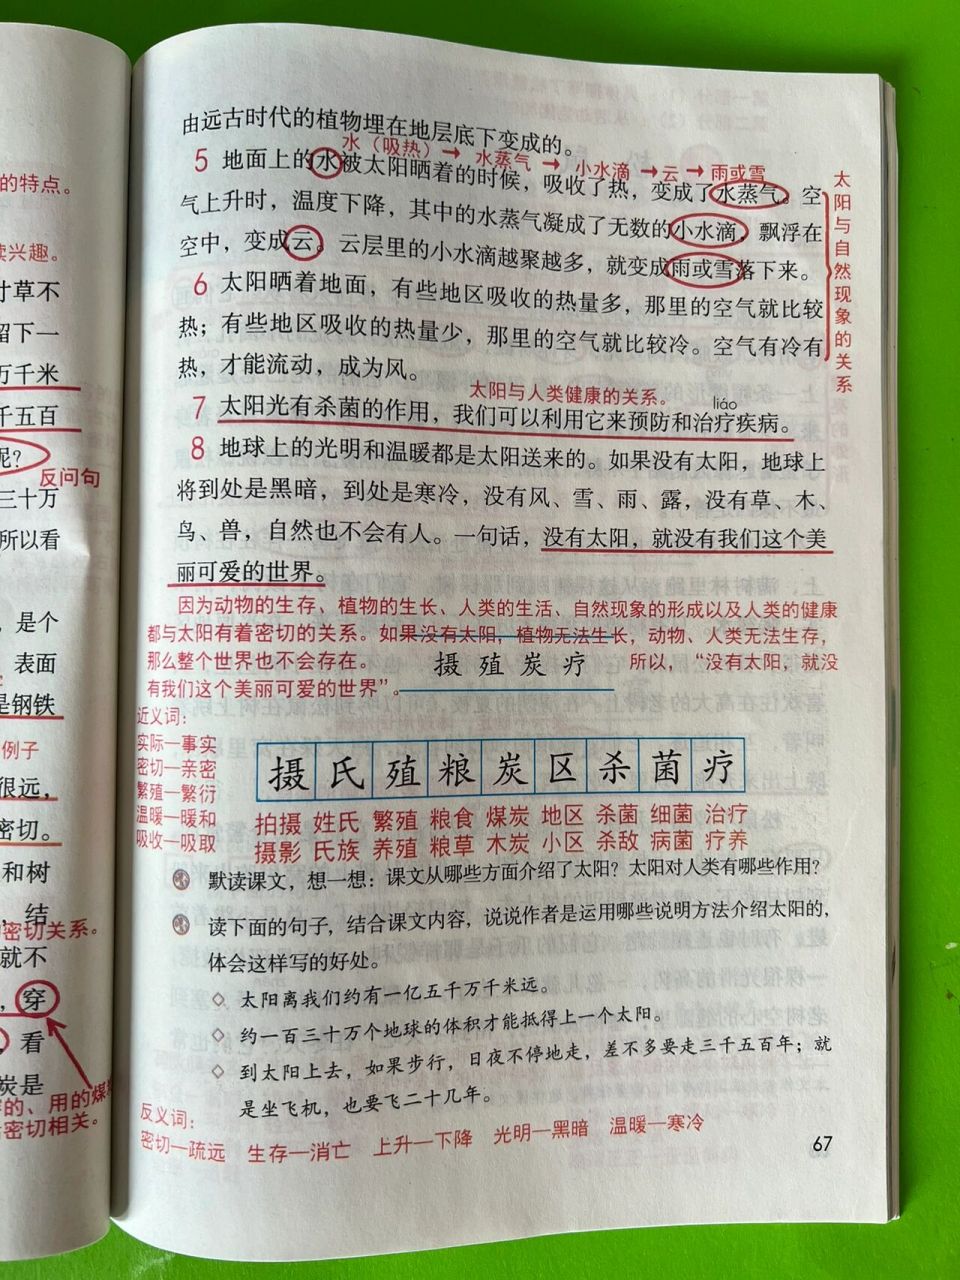 的特点。
读兴趣。
寸草不
留下一
万千米
千五百
呢？
反问句
三十万
所以看
，是个
表面
是钢铁
例子
很远，
密切。
和树
，结
密切关系。
就不
，穿
，看
炭是
的、用的煤
密切相关。
由远古时代的植物埋在地层底下变成的。
水（吸热）→ 水蒸气 → 小水滴 → 云 → 雨或雪
5 地面上的水被太阳晒着的时候，吸收了热，变成了水蒸气。空
气上升时，温度下降，其中的水蒸气凝成了无数的小水滴，飘浮在
空中，变成云。云层里的小水滴越聚越多，就变成雨或雪落下来。
太阳与自然现象的关系
6 太阳晒着地面，有些地区吸收的热量多，那里的空气就比较
热；有些地区吸收的热量少，那里的空气就比较冷。空气有冷有
热，才能流动，成为风。
太阳与人类健康的关系。
liáo
7 太阳光有杀菌的作用，我们可以利用它来预防和治疗疾病。
8 地球上的光明和温暖都是太阳送来的。如果没有太阳，地球上
将到处是黑暗，到处是寒冷，没有风、雪、雨、露，没有草、木、
鸟、兽，自然也不会有人。一句话，没有太阳，就没有我们这个美
丽可爱的世界。
因为动物的生存、植物的生长、人类的生活、自然现象的形成以及人类的健康
都与太阳有着密切的关系。如果没有太阳，植物无法生长，动物、人类无法生存，
那么整个世界也不会存在。 所以，“没有太阳，就没
有我们这个美丽可爱的世界”。
摄 殖 炭 疗
近义词：
实际—事实
密切—亲密
繁殖—繁衍
温暖—暖和
吸收—吸取
摄 氏 殖 粮 炭 区 杀 菌 疗
拍摄 姓氏 繁殖 粮食 煤炭 地区 杀菌 细菌 治疗
摄影 氏族 养殖 粮草 木炭 小区 杀敌 病菌 疗养
默读课文，想一想：课文从哪些方面介绍了太阳？太阳对人类有哪些作用？
读下面的句子，结合课文内容，说说作者是运用哪些说明方法介绍太阳的，
体会这样写的好处。
◇ 太阳离我们约有一亿五千万千米远。
◇ 约一百三十万个地球的体积才能抵得上一个太阳。
◇ 到太阳上去，如果步行，日夜不停地走，差不多要走三千五百年；就
是坐飞机，也要飞二十几年。
反义词：
密切—疏远 生存—消亡 上升—下降 光明—黑暗 温暖—寒冷
67